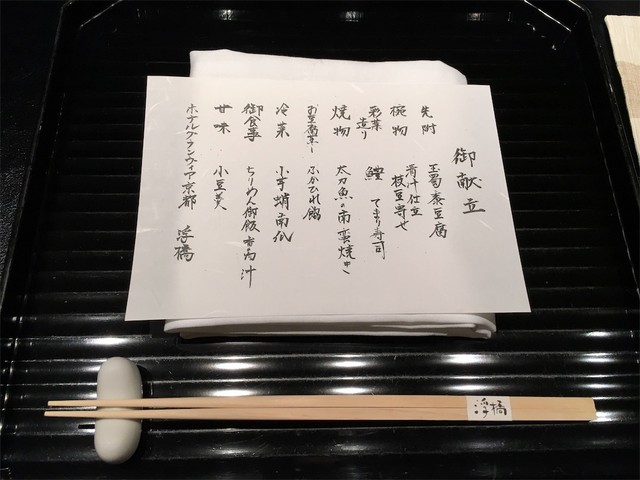 御献立
先附 玉蜀黍豆腐
椀物 清汁仕立
枝豆寄せ
彩菜
造り 鱧 てまり寿司
焼物 太刀魚の南蛮焼き
お豆腐蒸し ふかひれ餡
冷菜 小芋 蛸 南瓜
御食事 ちりめん御飯 香の物 汁
甘味 小豆羹
ホテルグランヴィア京都 浮橋
浮橋